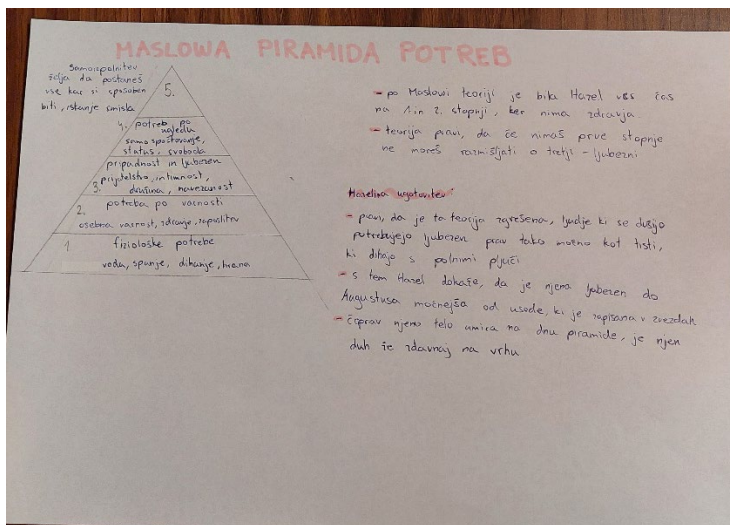 MASLOWA PIRAMIDA POTREB
Samoizpolnitev
želja da postaneš
vse kar si sposoben
biti, iskanje smisla
5.
4. potreb po
ugledu
samospoštovanje,
status, svoboda
pripadnost in ljubezen
3. prijateljstvo, intimnost,
družina, navezanost
2. potreba po varnosti
osebna varnost, zdravje, zaposlitev
1. fiziološke potrebe
voda, spanje, dihanje, hrana
- po Maslowi teoriji je bila Hazel ves čas
na 1. in 2. stopnji, ker nima zdravja.
- teorija pravi, da če nimaš prve stopnje
ne moreš razmišljati o tretji - ljubezni
Hazelina ugotovitev
- pravi, da je ta teorija zgrešena, ljudje ki se dušijo
potrebujejo ljubezen prav tako močno kot tisti,
ki dihajo s polnimi pljuči
- s tem Hazel dokaže, da je njena ljubezen do
Augustusa močnejša od usode, ki je zapisana v zvezdah
- čeprav njeno telo umira na dnu piramide, je njen
duh že zdavnaj na vrhu